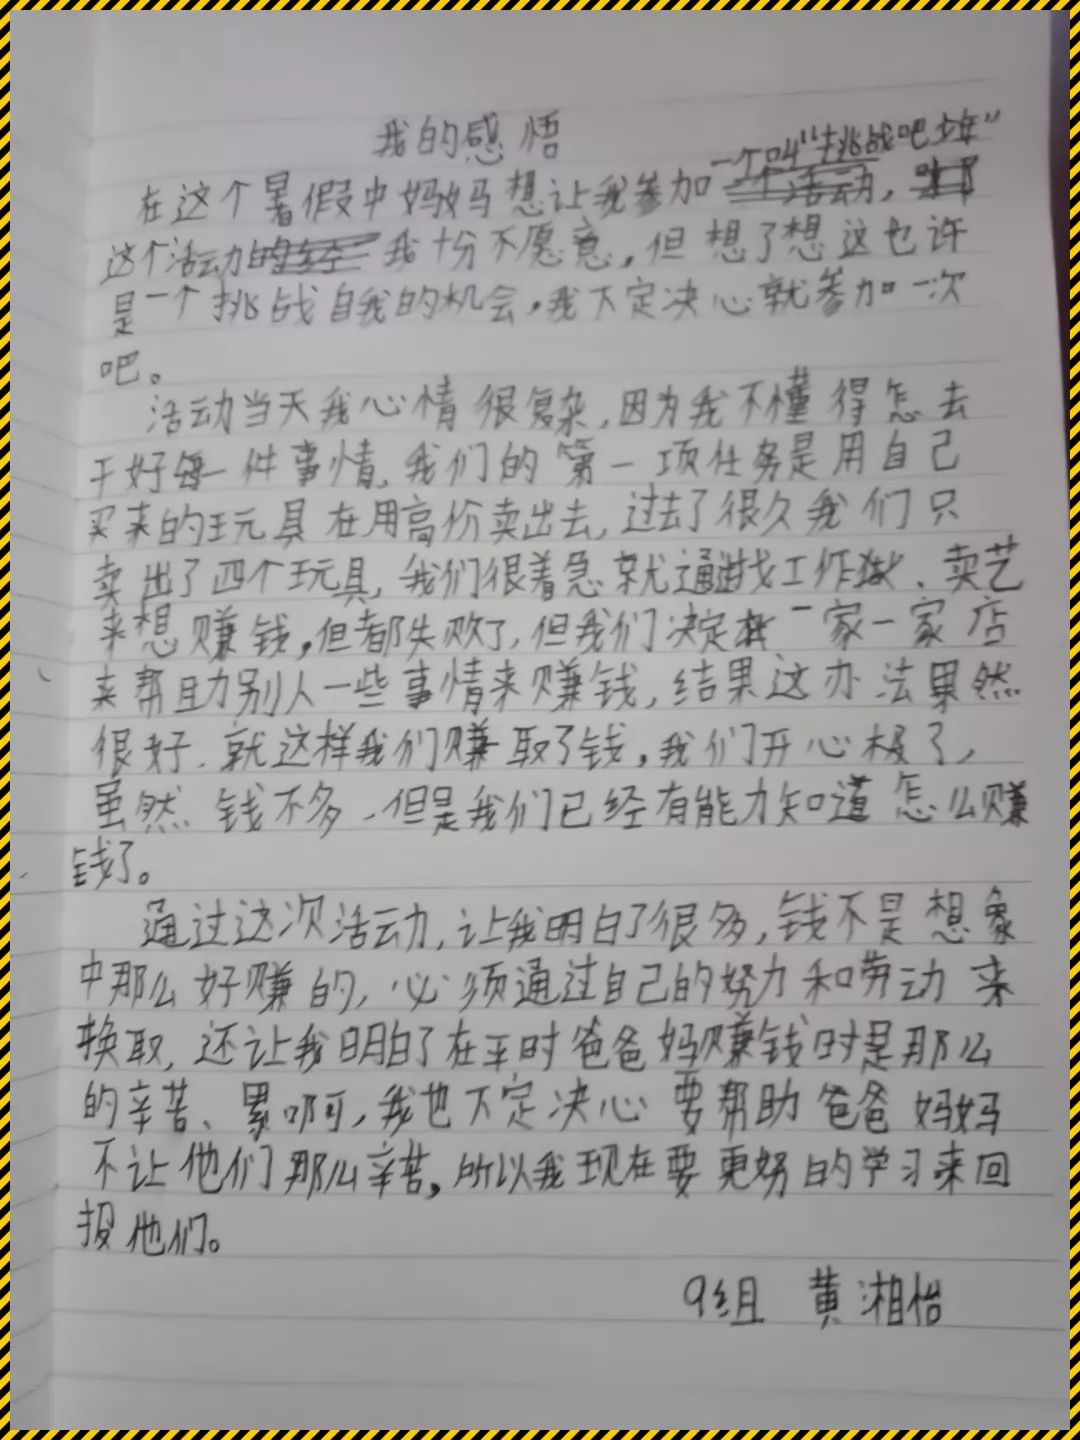 我的感悟
一个叫“挑战吧少年”
在这个暑假中妈妈想让我参加
这个活动的 我十分不愿意,但想了想这也许
是一个挑战自我的机会,我下定决心就参加一次
吧。
活动当天我心情很复杂,因为我不懂得怎去
干好每一件事情,我们的第一项任务是用自己
买来的玩具在用高价卖出去,过去了很久我们只
卖出了四个玩具,我们很着急就通过找工作做、卖艺
来想赚钱,但都失败了,但我们决定 一家一家店
来帮助别人一些事情来赚钱,结果这办法果然
很好.就这样我们赚取了钱,我们开心极了,
虽然钱不多,但是我们已经有能力知道怎么赚
钱了。
通过这次活动,让我明白了很多,钱不是想象
中那么好赚的,必须通过自己的努力和劳动来
换取,还让我明白了在平时爸爸妈赚钱时是那么
的辛苦、累啊,我也下定决心要帮助爸爸妈妈
不让他们那么辛苦,所以我现在要更努的学习来回
报他们。
9组 黄湘怡